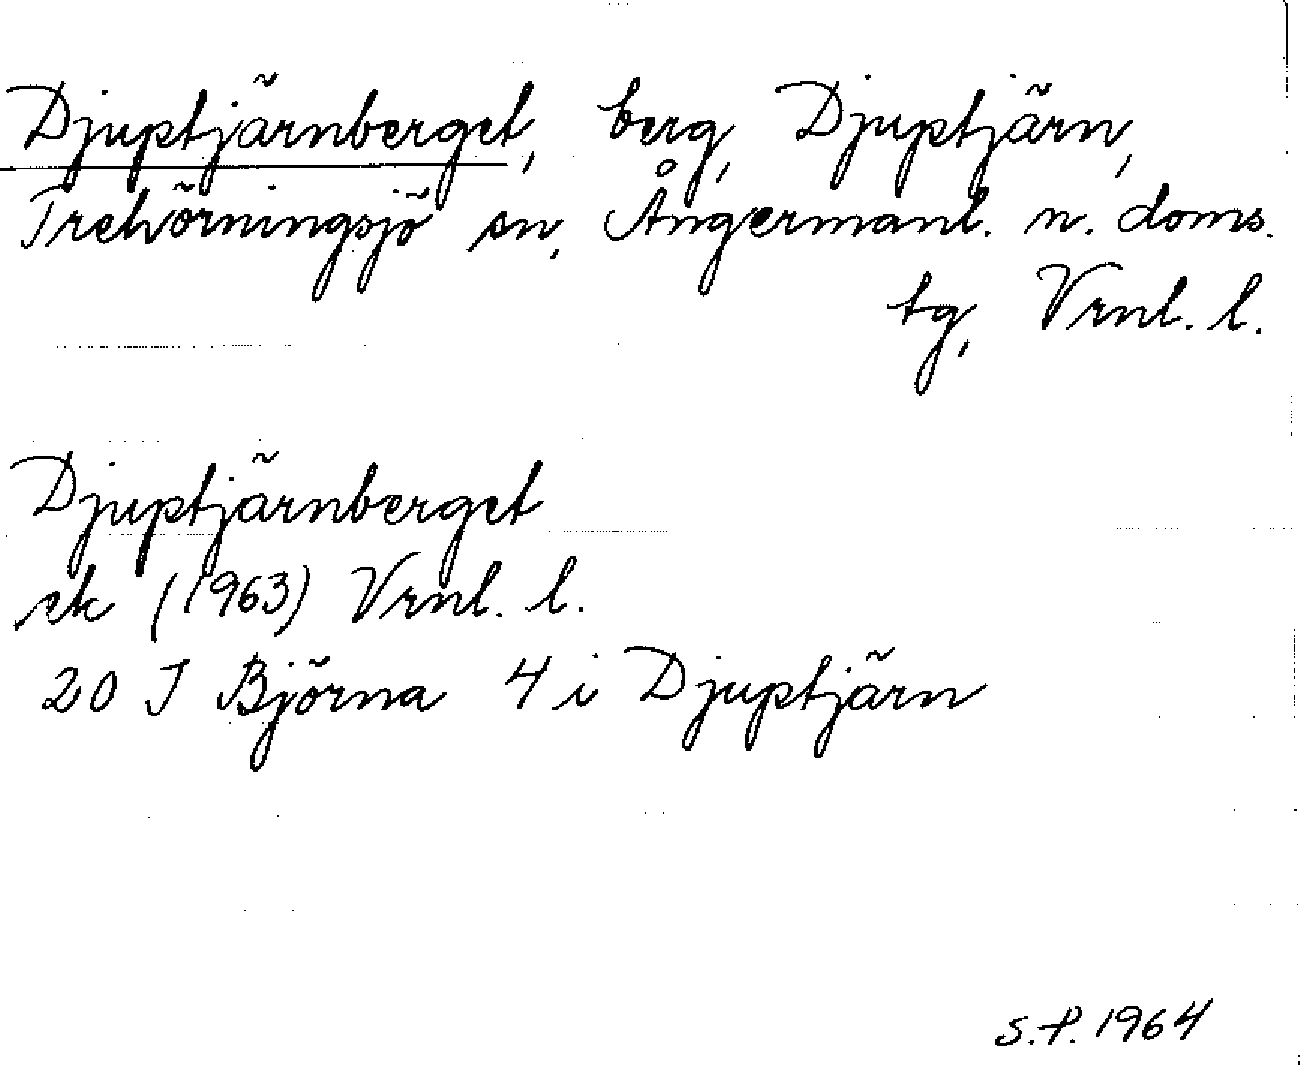 Djuptjärnberget, berg, Djuptjärn,
Trehörningsjö sn, Ångermanl. n. doms.
tg, Vrnl. l.
Djuptjärnberget
ek (1963) Vrnl. l.
20 I Björna 4 i Djuptjärn
S.P. 1964